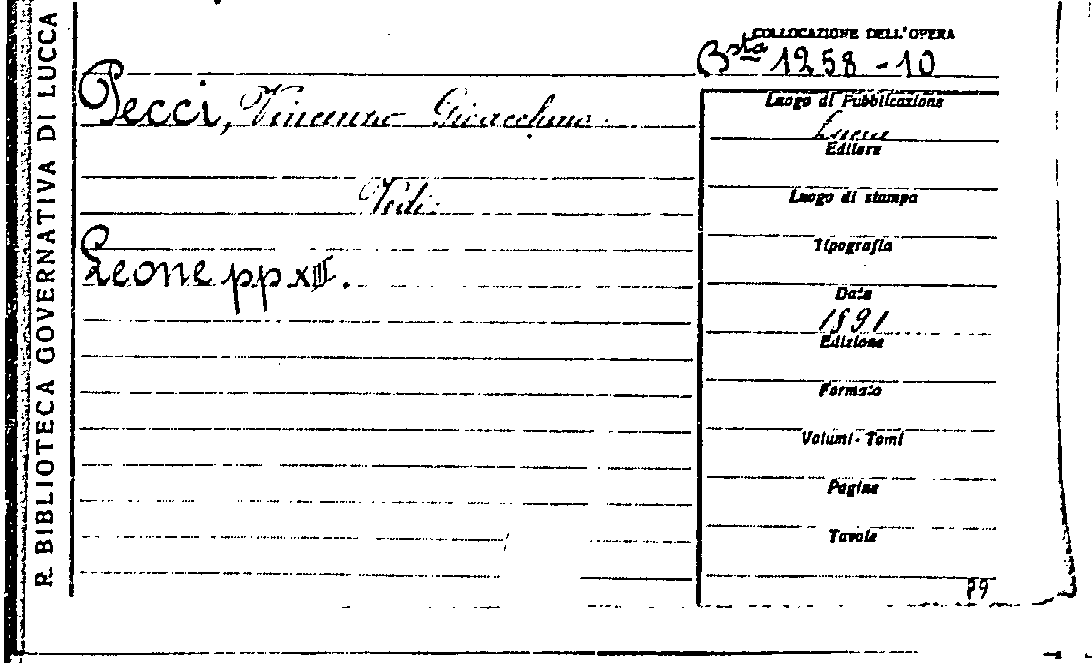 R. BIBLIOTECA GOVERNATIVA DI LUCCA
COLLOCAZIONE DELL'OPERA
Bsta 1258-10
Pecci, Vincenzo Gioacchino.
Vedi:
Leone pp XIII.
Luogo di Pubblicazione
Lucca
Editore
Luogo di stampa
Tipografia
Data
1891
Edizione
Formato
Volumi-Tomi
Pagine
Tavole
P9